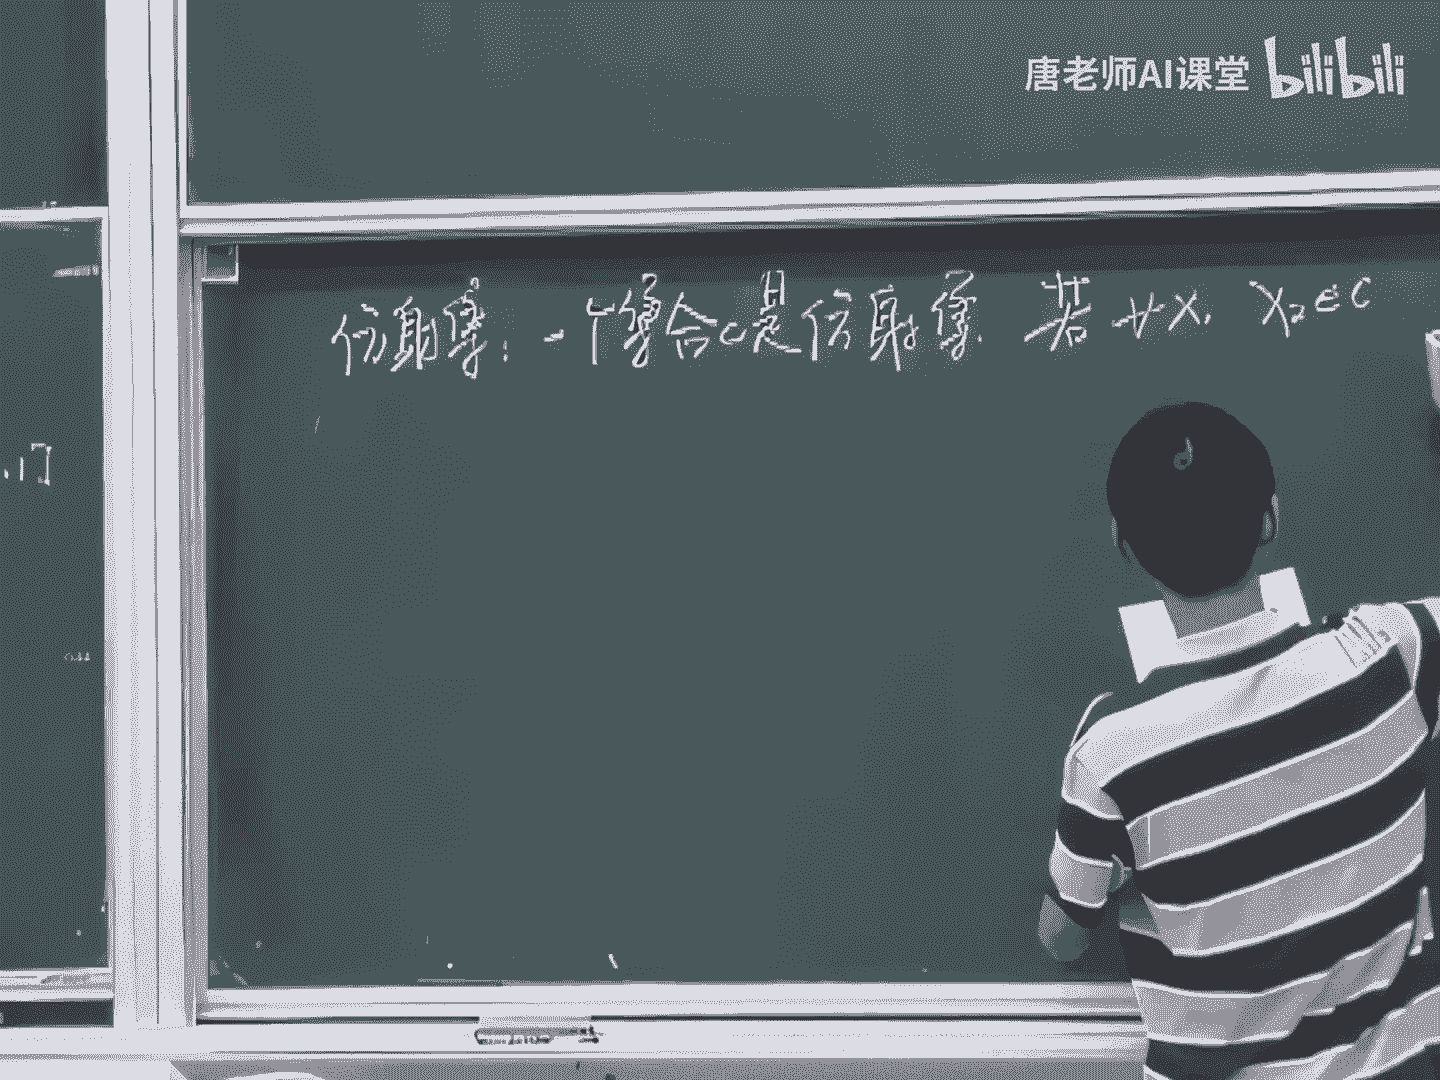 唐老师AI课堂 bilibili
仿射集：一个集合C是仿射集 若∀X₁ X₂∈C